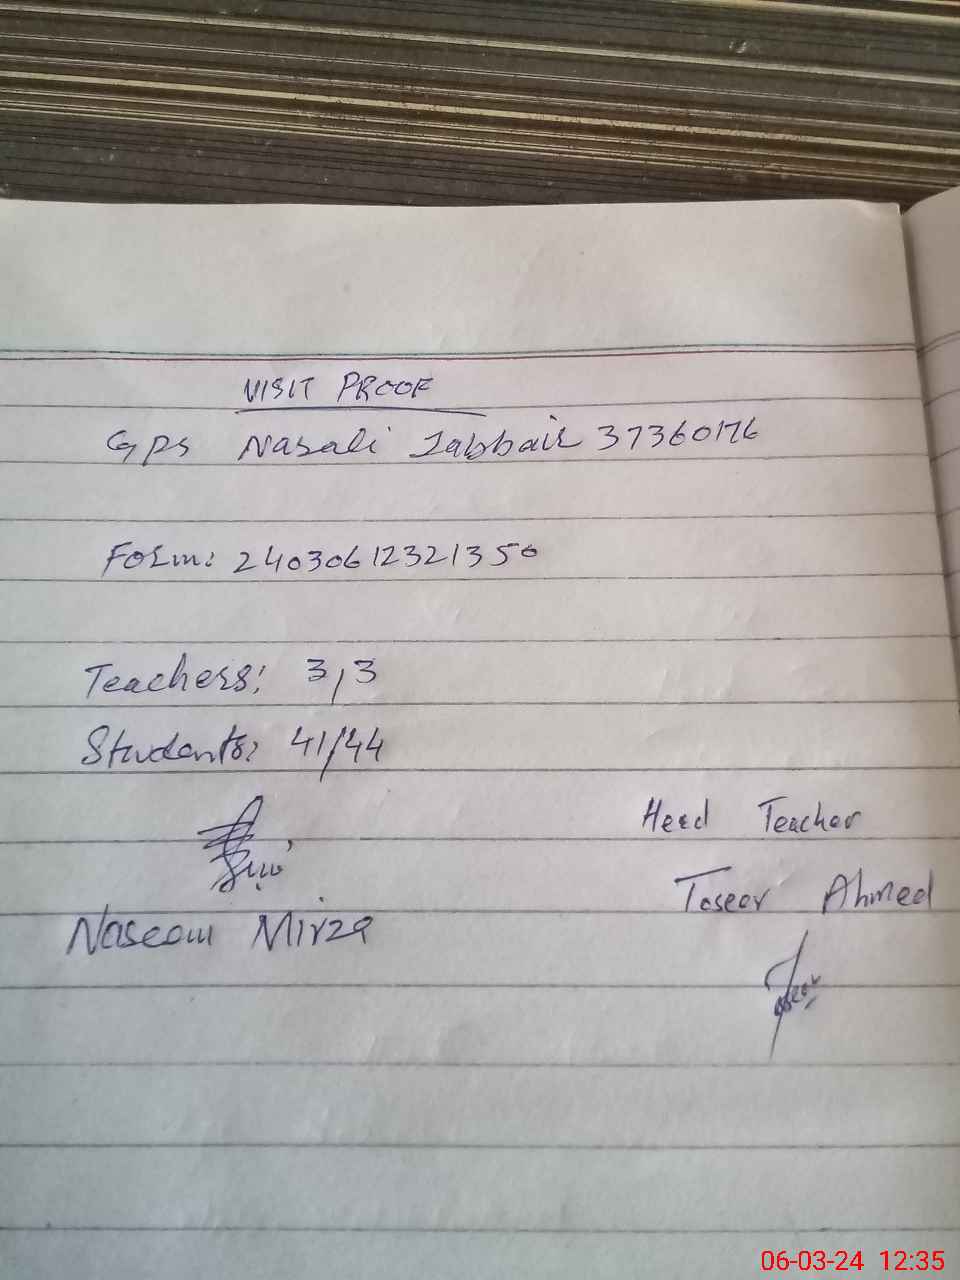 VISIT PROOF
GPS Nasali Jabbair 37360176
Form: 24030612321350
Teachers: 3/3
Students: 41/44
Head Teacher
Naseem Mirza
Taseer Ahmed
Taseer
06-03-24 12:35